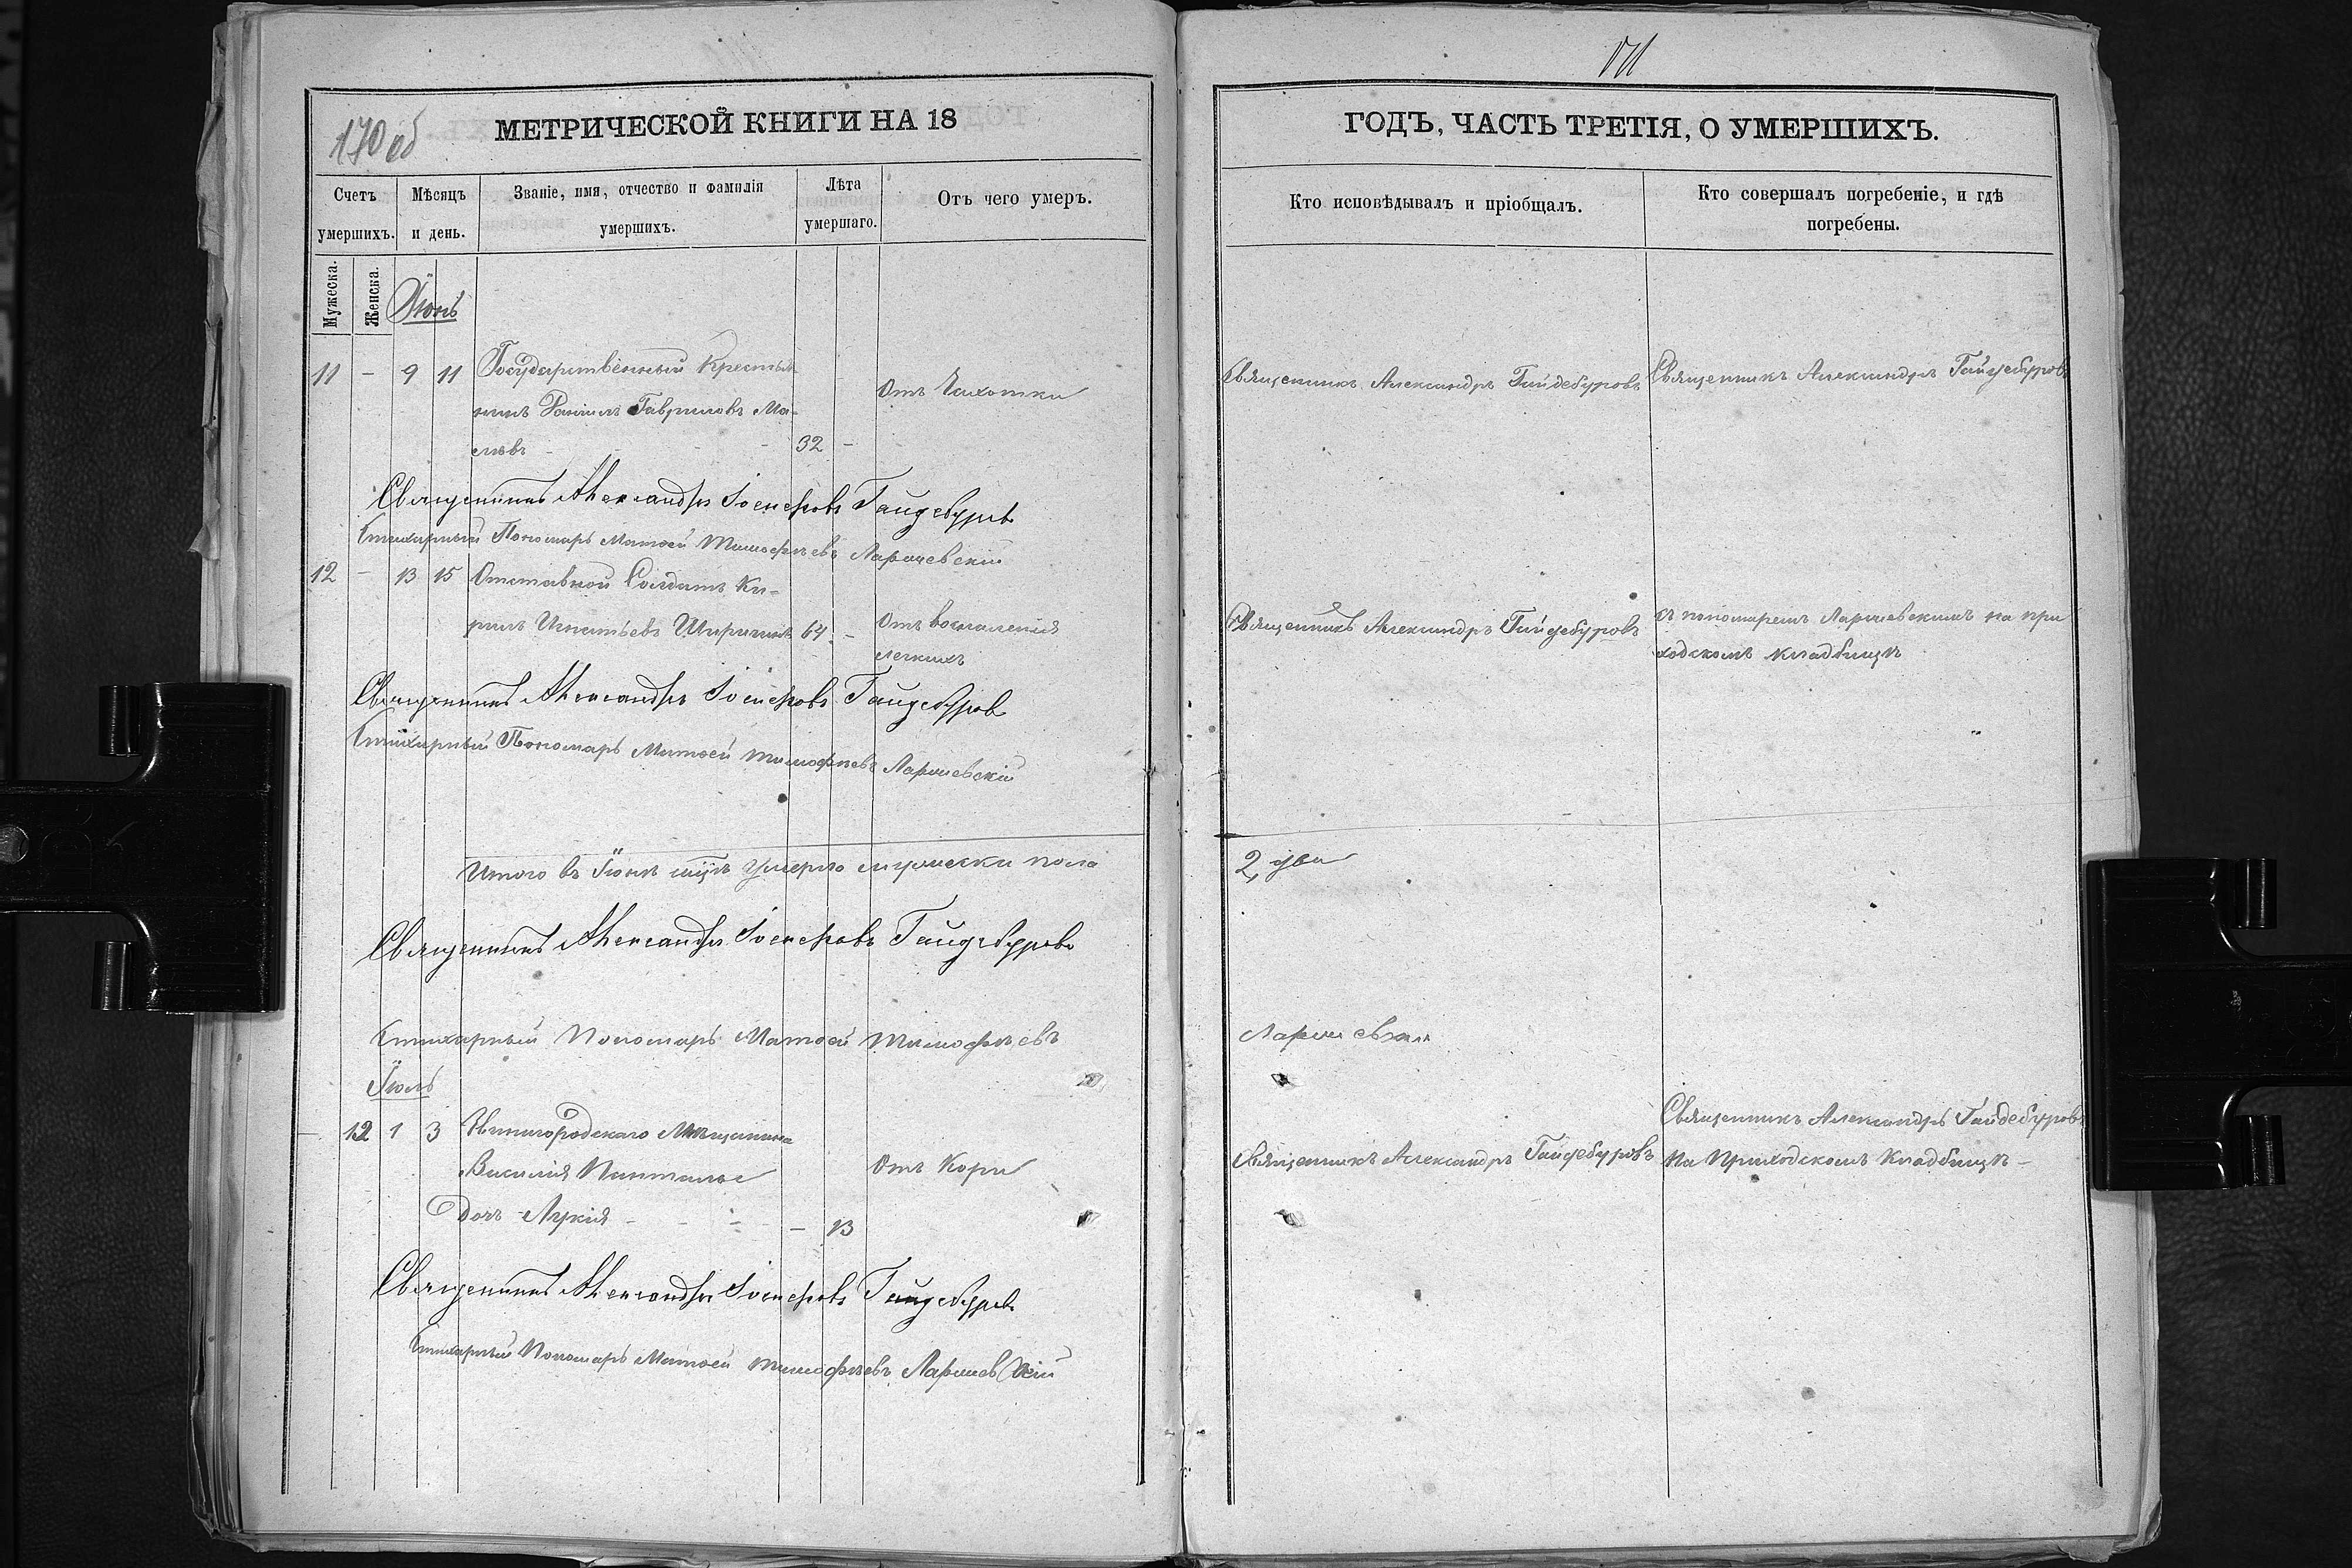 170 об
МЕТРИЧЕСКОЙ КНИГИ НА 18
Счетъ умершихъ.
Мѣсяцъ и день.
Званіе, имя, отчество и фамилія умершихъ.
Лѣта умершаго.
Отъ чего умеръ.
Мужеска.
Женска.
Іюнь
11 - 9 11 Государственный Крестья-
нинъ Гавриловъ Ма-
32 -
Отъ Чахотки
Священникъ Александръ Іосифовъ Гайдебуровъ
Стихарный Пономарь Матѳей Тимофѣевъ Ларшевскій
12 - 13 15 Отставной Солдатъ Ки-
рилъ Игнатьевъ 64 -
Отъ воспаленія
легкихъ
Священникъ Александръ Іосифовъ Гайдебуровъ
Стихарный Пономарь Матѳей Тимофѣевъ Ларшевскій
Итого въ Іюнѣ мцѣ умерло мужеска пола
Священникъ Александръ Іосифовъ Гайдебуровъ
Стихарный Пономарь Матѳей Тимофѣевъ
Іюль
12 1 3 Мѣщанина
Василія
дочь Лукія - - - - 13
Отъ Кори
Священникъ Александръ Іосифовъ Гайдебуровъ
Стихарный Пономарь Матѳей Тимофѣевъ Ларшевскій
171
ГОДЪ, ЧАСТЬ ТРЕТІЯ, О УМЕРШИХЪ.
Кто исповѣдывалъ и пріобщалъ.
Кто совершалъ погребеніе, и гдѣ погребены.
Священникъ Александръ Гайдебуровъ
Священникъ Александръ Гайдебуровъ
Священникъ Александръ Гайдебуровъ
съ пономаремъ Ларшевскимъ на при
ходскомъ кладбищѣ
2, два
Ларшевскій
Священникъ Александръ Гайдебуровъ
Священникъ Александръ Гайдебуровъ
на Приходскомъ Кладбищѣ -